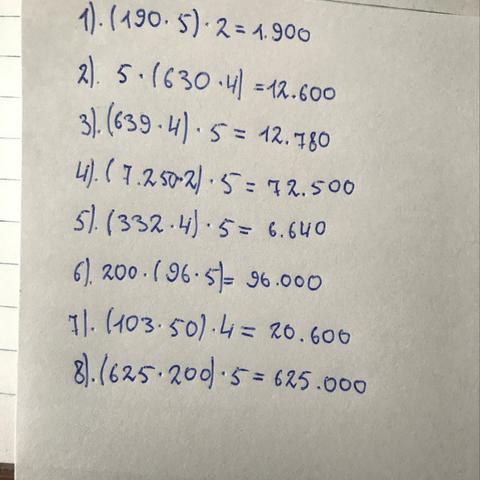 1). (190 · 5) · 2 = 1.900
2). 5 · (630 · 4) = 12.600
3). (639 · 4) · 5 = 12.780
4). (7.250 · 2) · 5 = 72.500
5). (332 · 4) · 5 = 6.640
6). 200 · (96 · 5) = 96.000
7). (103 · 50) · 4 = 20.600
8). (625 · 200) · 5 = 625.000